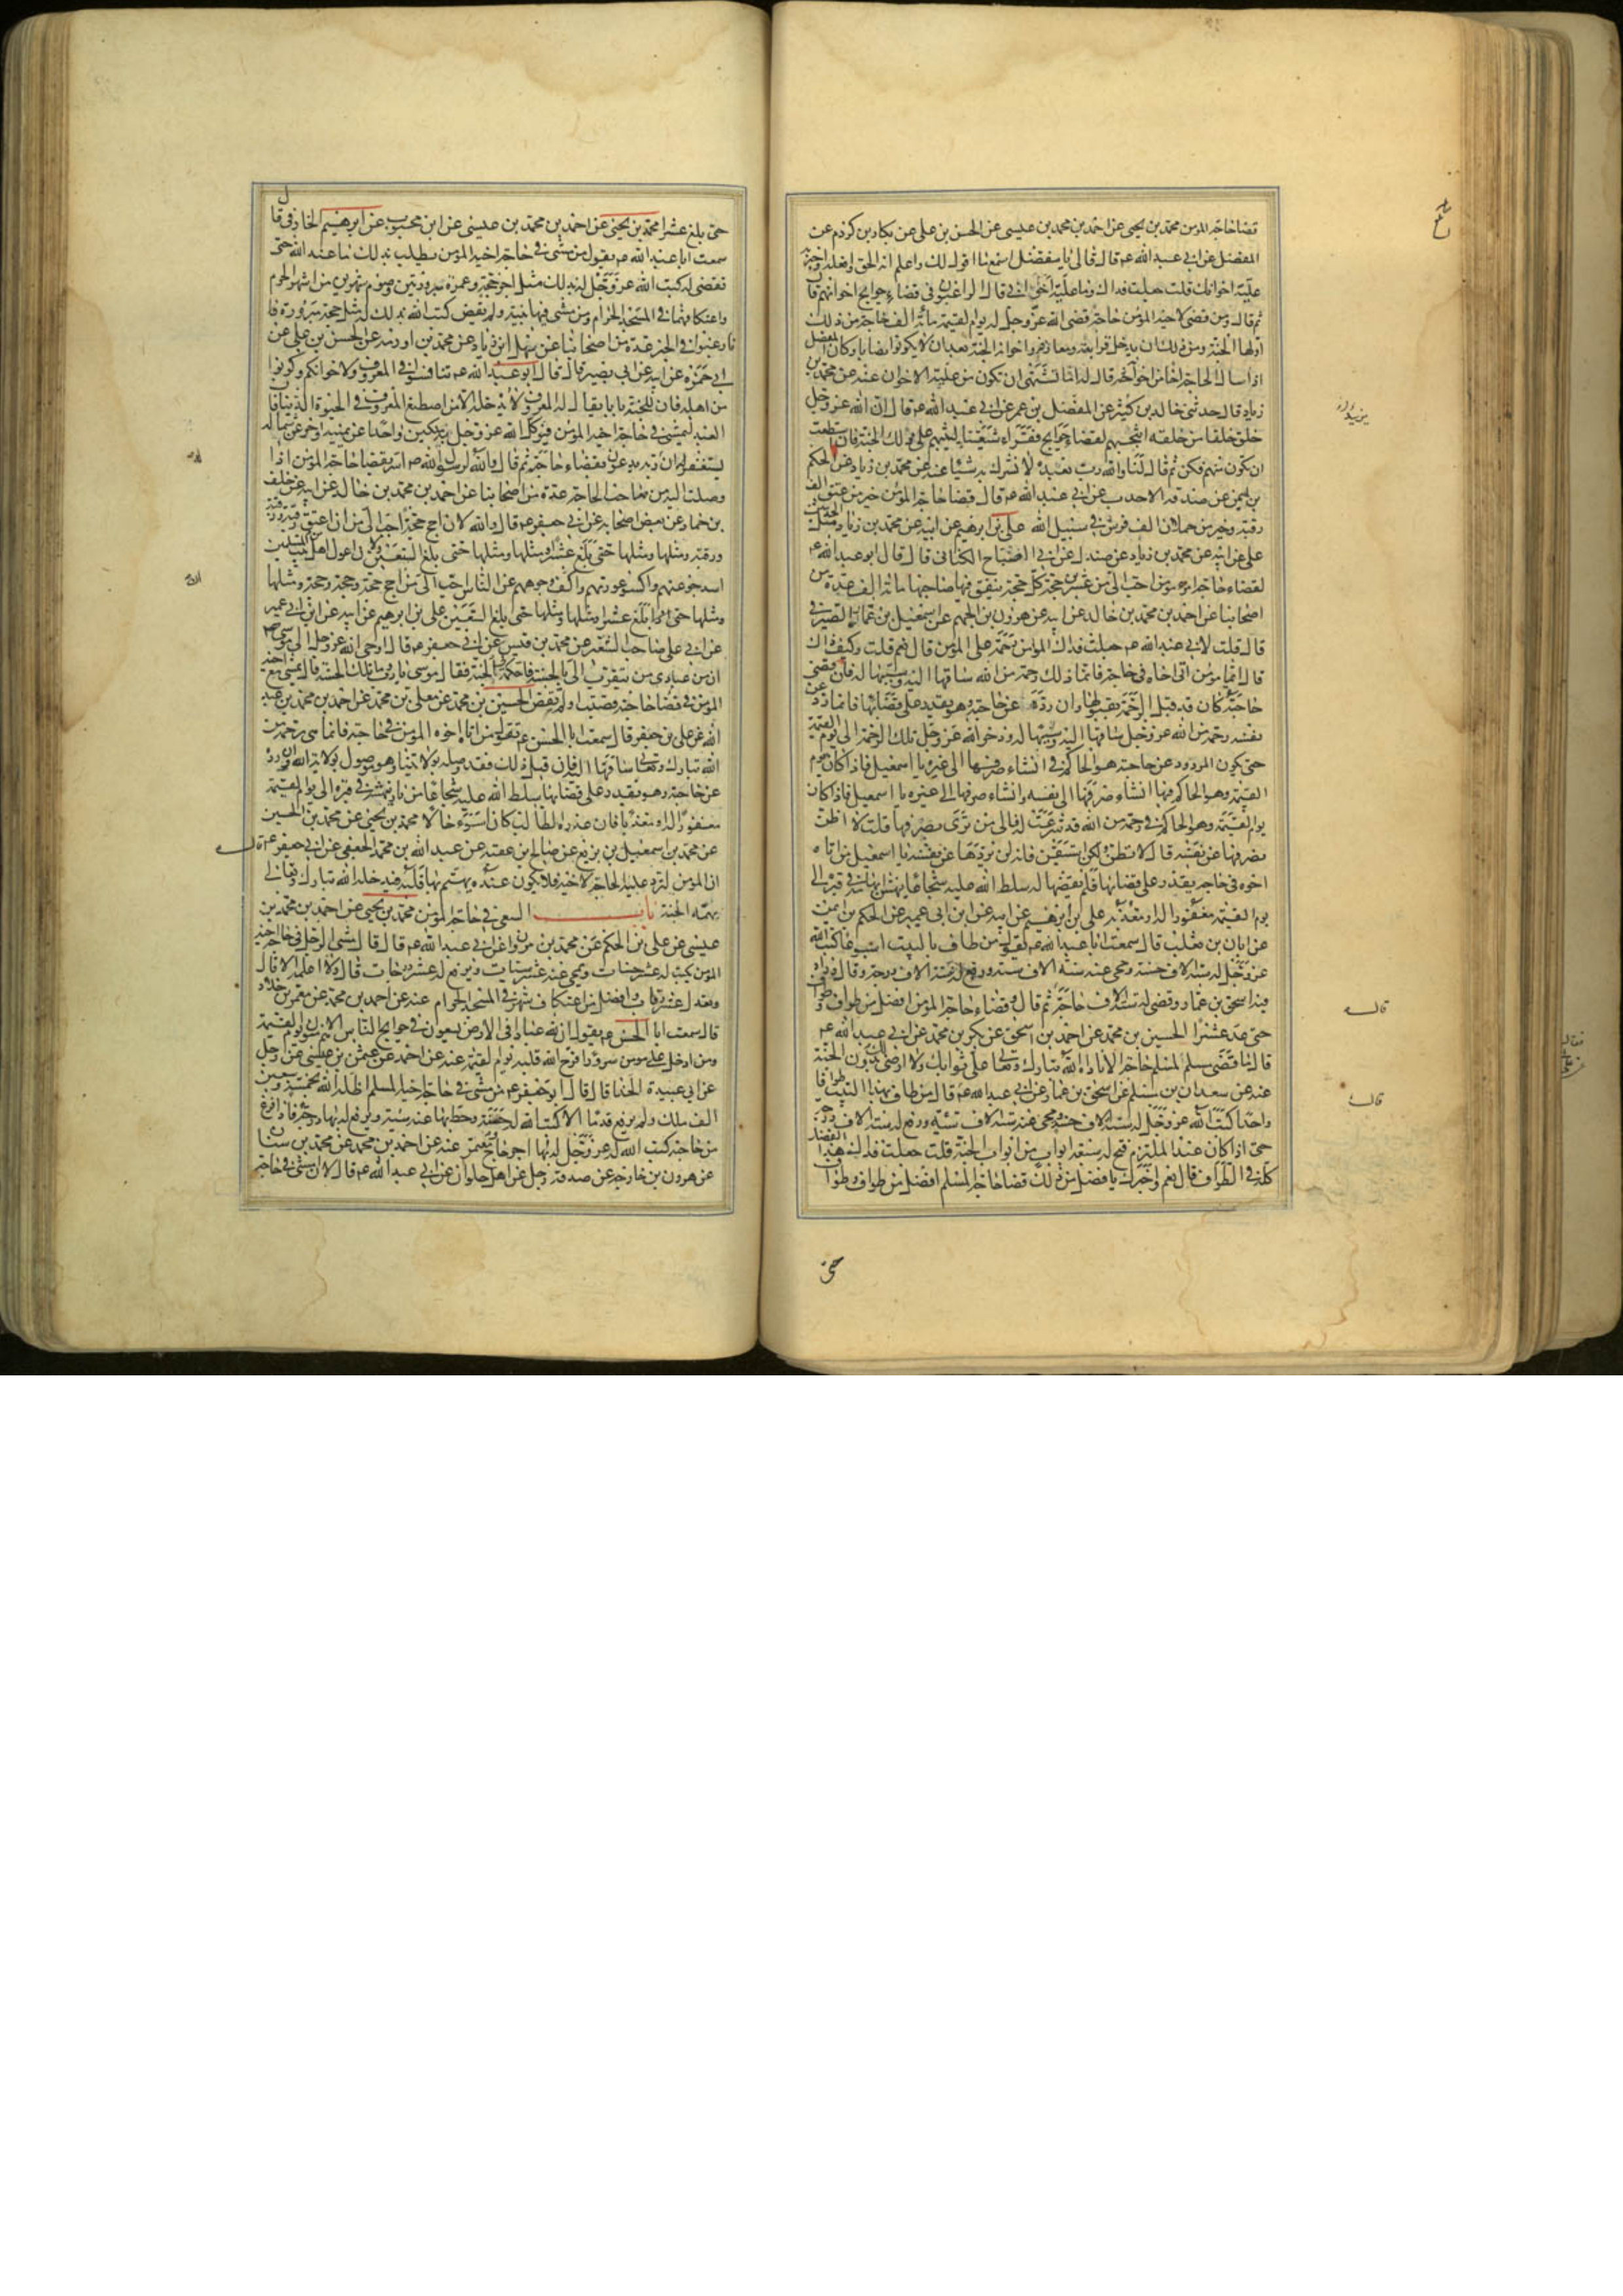 قضا حاجة المؤمن محمد بن يحيى عن احمد بن محمد بن عيسى عن الحسن بن على عن بكار بن كردم عن
المفضل عن ابى عبد الله عم قال قال لى يا مفضل اسمع ما اقول لك واعلم انه الحق وافعله واخبر به
علية اخوانك قلت جعلت فداك وما علية اخوانى قال الراغبون فى قضاء حوايج اخوانهم قا
ثم قال ومن قضى لاخيه المؤمن حاجة قضى الله عز وجل له يوم القيمة مائة الف حاجة من ذلك
اولها الجنة ومن ذلك ان يدخل قرابته ومعارفه واخوانه الجنة بعد ان لا يكونوا نصابا وكان المفضل
اذا سال الحاجة اخا من اخوانه قال له اما تشتهى ان تكون من علية الاخوان عنه عن محمد بن
زياد قال حدثنى خالد بن يزيد عن المفضل بن عمر عن ابى عبد الله عم قال ان الله عز وجل
خلق خلقا من خلقه انتجبهم لقضاء حوايج فقراء شيعتنا ليثيبهم على ذلك الجنة فان استطعت
ان تكون منهم فكن ثم قال لنا والله رب نعبده لا نشرك به شيئا عنه عن محمد بن زياد عن الحكم
بن ايمن عن صدقة الاحدب عن ابى عبد الله عم قال قضا حاجة المؤمن خير من عتق الف
رقبة وخير من حملان الف فرس فى سبيل الله على بن ابرهيم عن ابيه عن محمد بن زياد مثل الحديثين
على عن ابيه عن محمد بن زياد عن صندل عن ابى الصباح الكنانى قال قال ابو عبد الله عم
لقضاء حاجة امرء مؤمن احب الى من عشرين حجة كل حجة ينفق فيها صاحبها مائة الف عدة من
اصحابنا عن احمد بن محمد بن خالد عن ابيه عن هرون بن الجهم عن اسمعيل بن عمار الصيرفى
قال قلت لابى عبد الله عم جعلت فداك المؤمن رحمة على المؤمن قال نعم قلت وكيف ذاك
قال ايما مؤمن اتى اخاه فى حاجة فانما ذلك رحمة من الله ساقها اليه وسببها له فان قضى
حاجته كان قد قبل الرحمة بقبولها وان رده عن حاجته وهو يقدر على قضائها فانما رد عن
نفسه رحمة من الله عز وجل ساقها اليه وسببها له وذخر الله عز وجل تلك الرحمة الى يوم القيمة
حتى يكون المردود عن حاجته هو الحاكم فى ان شاء صرفها الى غيره يا اسمعيل فاذا كان يوم
القيمة وهو الحاكم فيها ان شاء صرفها الى نفسه وان شاء صرفها الى غيره يا اسمعيل فاذا كان
يوم القيمة وهو الحاكم فى رحمة من الله قد شرعت له فالى من ترى يصرفها قلت لا اظن
يصرفها عن نفسه قال لا تظن ولكن استيقن فانه لن يردها عن نفسه يا اسمعيل من اتاه
اخوه فى حاجة يقدر على قضائها فلم يقضها له سلط الله عليه شجاعا ينهش ابهامه فى قبره الى
يوم القيمة مغفورا له او معذبا على بن ابرهيم عن ابيه عن ابن ابى عمير عن الحكم بن ايمن
عن ابان بن تغلب قال سمعت ابا عبد الله عم يقول من طاف بالبيت اسبوعا كتب الله
عز وجل له ستة الاف حسنة ومحى عنه ستة الاف سيئة ورفع له ستة الاف درجة وقال وزاد
فيه اسحق بن عمار وقضى له ستة الاف حاجة ثم قال وقضاء حاجة المؤمن افضل من طواف وطواف
حتى عد عشرا الحسين بن محمد عن احمد بن اسحق عن بكر بن محمد عن ابى عبد الله عم
قال ما قضى مسلم لمسلم حاجة الا ناداه الله تبارك وتعالى على ثوابك ولا ارضى لك بدون الجنة
عنه عن سعدان بن مسلم عن اسحق بن عمار عن ابى عبد الله عم قال من طاف بهذا البيت طوافا
واحدا كتب الله عز وجل له ستة الاف حسنة ومحى عنه ستة الاف سيئة ورفع له ستة الاف درجة
حتى اذا كان عند الملتزم فتح له سبعة ابواب من ابواب الجنة قلت جعلت فداك هذا الفضل
كله فى الطواف قال نعم واخبرك بافضل من ذلك قضا حاجة المسلم افضل من طواف وطواف
حتى
حتى بلغ عشرا محمد بن يحيى عن احمد بن محمد بن عيسى عن ابن محبوب عن ابرهيم الخارفى قال
سمعت ابا عبد الله عم يقول من مشى فى حاجة اخيه المؤمن يطلب بذلك ما عند الله حتى
تقضى له كتب الله عز وجل له بذلك مثل اجر حجة وعمرة مبرورتين وصوم شهرين من اشهر الحرم
واعتكافهما فى المسجد الحرام ومن مشى فيها بنية ولم تقض كتب الله بذلك له مثل حجة مبرورة فا
فارغبوا فى الخير عدة من اصحابنا عن سهل ابن زياد عن محمد بن اورمه عن الحسن بن على عن
ابى حمزة عن ابيه عن ابى بصير قال قال ابو عبد الله عم تنافسوا فى المعروف ولاخوانكم وكونوا
من اهله فان للجنة بابا يقال له المعروف لا يدخله الا من اصطنع المعروف فى الحيوة الدنيا فان
العبد ليمشى فى حاجة اخيه المؤمن فيوكل الله عز وجل به ملكين واحدا عن يمينه واخر عن شماله
يستغفران له ربه يدعون بقضاء حاجته ثم قال والله لرسول الله ص اسر بقضا حاجة المؤمن اذا
وصلت اليه من صاحب الحاجة عدة من اصحابنا عن احمد بن محمد بن خالد عن ابيه عن خلف
بن حماد عن بعض اصحابه عن ابى جعفر عم قال والله لان احج حجة احب الى من ان اعتق رقبة ورقبة
ورقبة ومثلها ومثلها حتى بلغ عشرا ومثلها ومثلها حتى بلغ السبعين ولان اعول اهل بيت من المسلمين
اسد جوعتهم واكسو عورتهم واكف وجوههم عن الناس احب الى من احج حجة وحجة وحجة ومثلها
ومثلها حتى بلغ عشرا ومثلها ومثلها حتى بلغ السبعين على بن ابرهيم عن ابيه عن ابن ابى عمير
عن ابى على صاحب الشعير عن محمد بن قيس عن ابى جعفر عم قال اوحى الله عز وجل الى موسى عم
ان من عبادى من يتقرب الى بالحسنة فاحكمه فى الجنة فقال موسى يا رب وما تلك الحسنة قال يمشى مع اخيه
المؤمن فى قضا حاجته قضيت او لم تقض الحسين بن محمد عن معلى بن محمد عن احمد بن محمد بن عبد
الله عن على بن جعفر قال سمعت ابا الحسن عم يقول من اتاه اخوه المؤمن فى حاجة فانما هى رحمة من
الله تبارك وتعالى ساقها اليه فان قبل ذلك فقد وصله بولايتنا وهو موصول بولاية الله وان رده
عن حاجته وهو يقدر على قضائها سلط الله عليه شجاعا من نار ينهشه فى قبره الى يوم القيمة
مغفورا له او معذبا فان عذره الطالب كان اسوء حالا محمد بن يحيى عن محمد بن الحسين
عن محمد بن اسمعيل بن بزيع عن صالح بن عقبة عن عبد الله بن محمد الجعفى عن ابى جعفر عم قال
ان المؤمن لترد عليه الحاجة لاخيه فلا يكون عنده يهتم بها قلبه فيدخله الله تبارك وتعالى
بهمه الجنة باب السعى فى حاجة المؤمن محمد بن يحيى عن احمد بن محمد بن
عيسى عن على بن الحكم عن محمد بن مروان عن ابى عبد الله عم قال قال مشى الرجل فى حاجة اخيه
المؤمن يكتب له عشر حسنات ويمحى عنه عشر سيئات ويرفع له عشر درجات قال ولا اعلمه الا قال
ويعدل عشر رقاب وافضل من اعتكاف شهر فى المسجد الحرام عنه عن احمد بن محمد عن معمر بن خلاد
قال سمعت ابا الحسن عم يقول ان لله عبادا فى الارض يسعون فى حوايج الناس هم الامنون يوم القيمة
ومن ادخل على مؤمن سرورا فرح الله قلبه يوم القيمة عنه عن احمد عن عثمن بن عيسى عن رجل
عن ابى عبيدة الحذا قال قال ابو جعفر عم من مشى فى حاجة اخيه المسلم اظله الله بخمسة وسبعين
الف ملك ولم يرفع قدما الا كتب الله له حسنة وحط بها عنه سيئة ويرفع له بها درجة فاذا فرغ
من حاجته كتب الله له عز وجل له بها اجر حاج ومعتمر عنه عن احمد بن محمد عن محمد بن سنان
عن هرون بن خارجه عن صدقة رجل عن اهل حلوان عن ابى عبد الله عم قال لان مشى فى حاجة